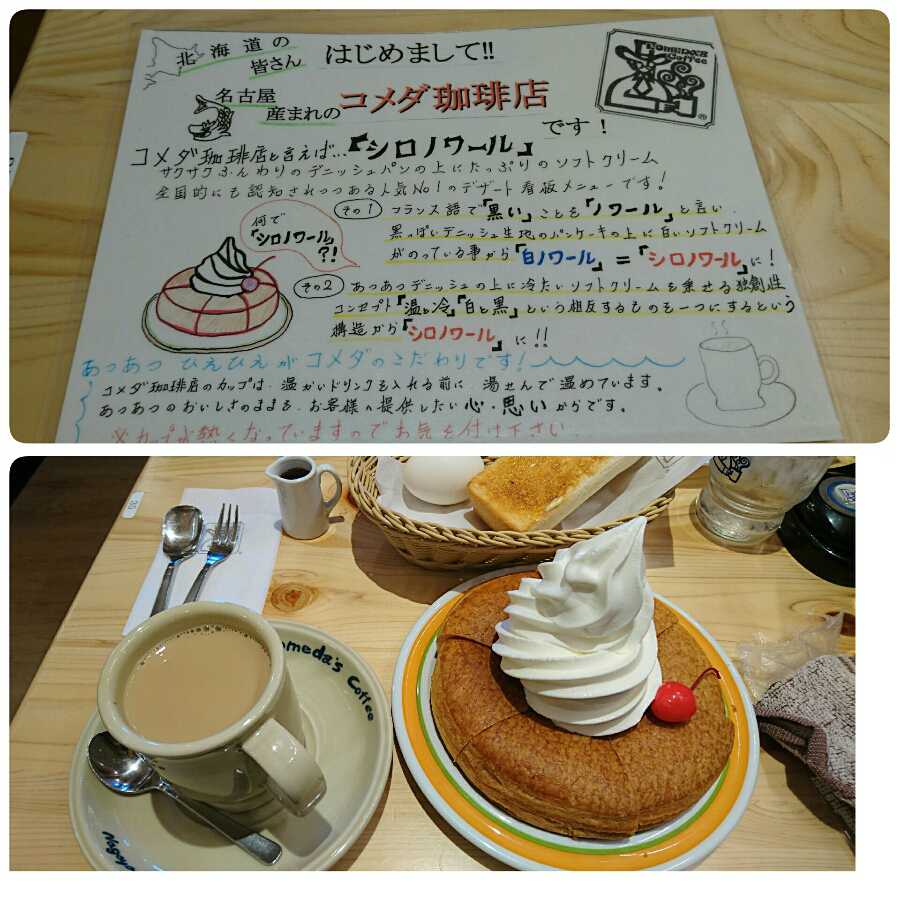 北海道の
皆さん はじめまして!!
名古屋
産まれのコメダ珈琲店
です！
KOMEDA'S
Coffee
コメダ珈琲店と言えば…『シロノワール』
サクサクふんわりのデニッシュパンの上にたっぷりのソフトクリーム
全国的にも認知されつつある人気No1のデザート看板メニューです!
何で
「シロノワール」
?!
その1 フランス語で「黒い」ことを「ノワール」と言い、
黒っぽいデニッシュ生地のパンケーキの上に白いソフトクリーム
がのっている事から「白ノワール」=「シロノワール」に!
その2 あつあつデニッシュの上に冷たいソフトクリームを乗せる独創性
コンセプト「温と冷」「白と黒」という相反するものを一つにするという
構造から「シロノワール」に!!
あつあつ ひえひえがコメダのこだわりです!
コメダ珈琲店のカップは、温かいドリンクを入れる前に、湯せんで温めています。
あつあつのおいしさのままを、お客様へ提供したい心・思いからです。
※カップが熱くなっていますのでお気を付け下さい…
Komeda's Coffee
Nagoya